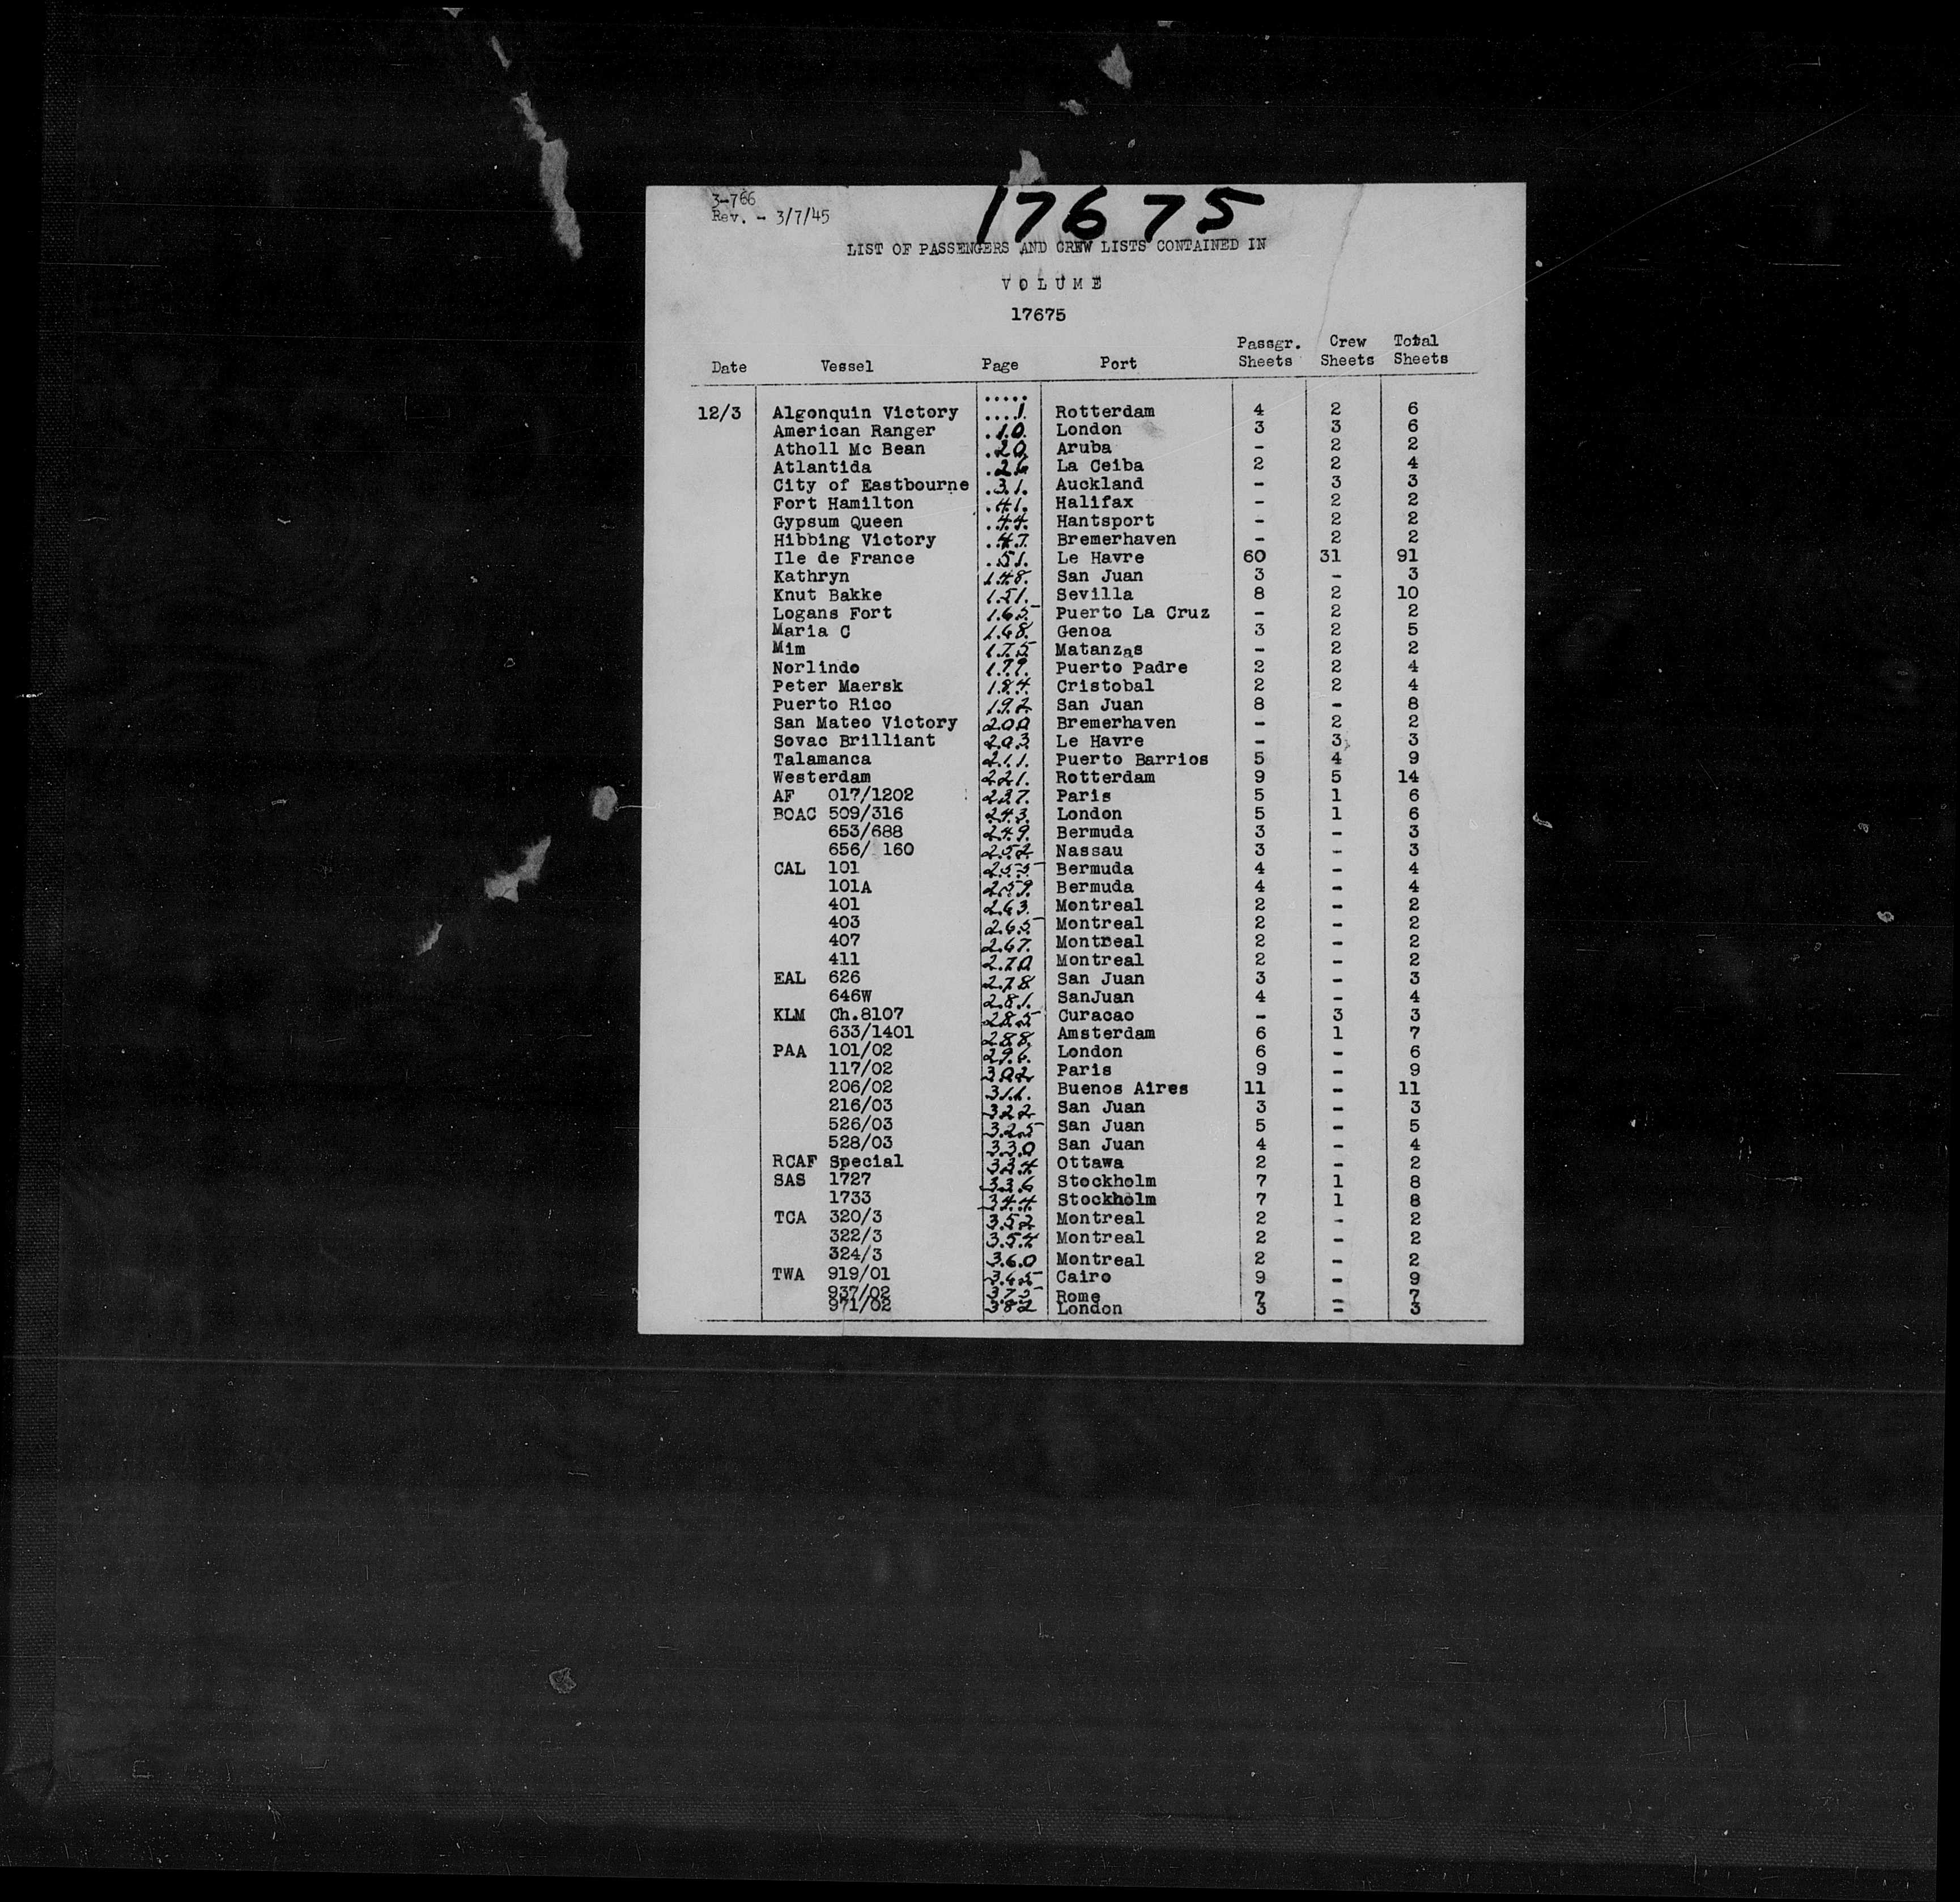 3-766
Rev. - 3/7/45
17675
LIST OF PASSENGERS AND CREW LISTS CONTAINED IN
VOLUME
17675
Date Vessel Page Port Passgr. Sheets Crew Sheets Total Sheets
12/3 Algonquin Victory ....1. Rotterdam 4 2 6
American Ranger .10. London 3 3 6
Atholl Mc Bean .20. Aruba - 2 2
Atlantida .26 La Ceiba 2 2 4
City of Eastbourne .31. Auckland - 3 3
Fort Hamilton .41. Halifax - 2 2
Gypsum Queen .44. Hantsport - 2 2
Hibbing Victory .47. Bremerhaven - 2 2
Ile de France .51. Le Havre 60 31 91
Kathryn 148. San Juan 3 - 3
Knut Bakke 151. Sevilla 8 2 10
Logans Fort 165 Puerto La Cruz - 2 2
Maria C 168. Genoa 3 2 5
Mim 175 Matanzas - 2 2
Norlindo 179. Puerto Padre 2 2 4
Peter Maersk 184. Cristobal 2 2 4
Puerto Rico 192 San Juan 8 - 8
San Mateo Victory 200 Bremerhaven - 2 2
Sovac Brilliant 203 Le Havre - 3 3
Talamanca 211. Puerto Barrios 5 4 9
Westerdam 221. Rotterdam 9 5 14
AF 017/1202 237. Paris 5 1 6
BOAC 509/316 243. London 5 1 6
653/688 249. Bermuda 3 - 3
656/ 160 252 Nassau 3 - 3
CAL 101 255 Bermuda 4 - 4
101A 259. Bermuda 4 - 4
401 263. Montreal 2 - 2
403 265 Montreal 2 - 2
407 267. Montreal 2 - 2
411 270 Montreal 2 - 2
EAL 626 278 San Juan 3 - 3
646W 281. SanJuan 4 - 4
KLM Ch.8107 285 Curacao - 3 3
633/1401 288. Amsterdam 6 1 7
PAA 101/02 296. London 6 - 6
117/02 302 Paris 9 - 9
206/02 311. Buenos Aires 11 - 11
216/03 322 San Juan 3 - 3
526/03 325 San Juan 5 - 5
528/03 330 San Juan 4 - 4
RCAF Special 334 Ottawa 2 - 2
SAS 1727 336 Stockholm 7 1 8
1733 344. Stockholm 7 1 8
TCA 320/3 352 Montreal 2 - 2
322/3 354 Montreal 2 - 2
324/3 360 Montreal 2 - 2
TWA 919/01 365 Cairo 9 - 9
937/02 375 Rome 7 - 7
971/02 382 London 3 - 3